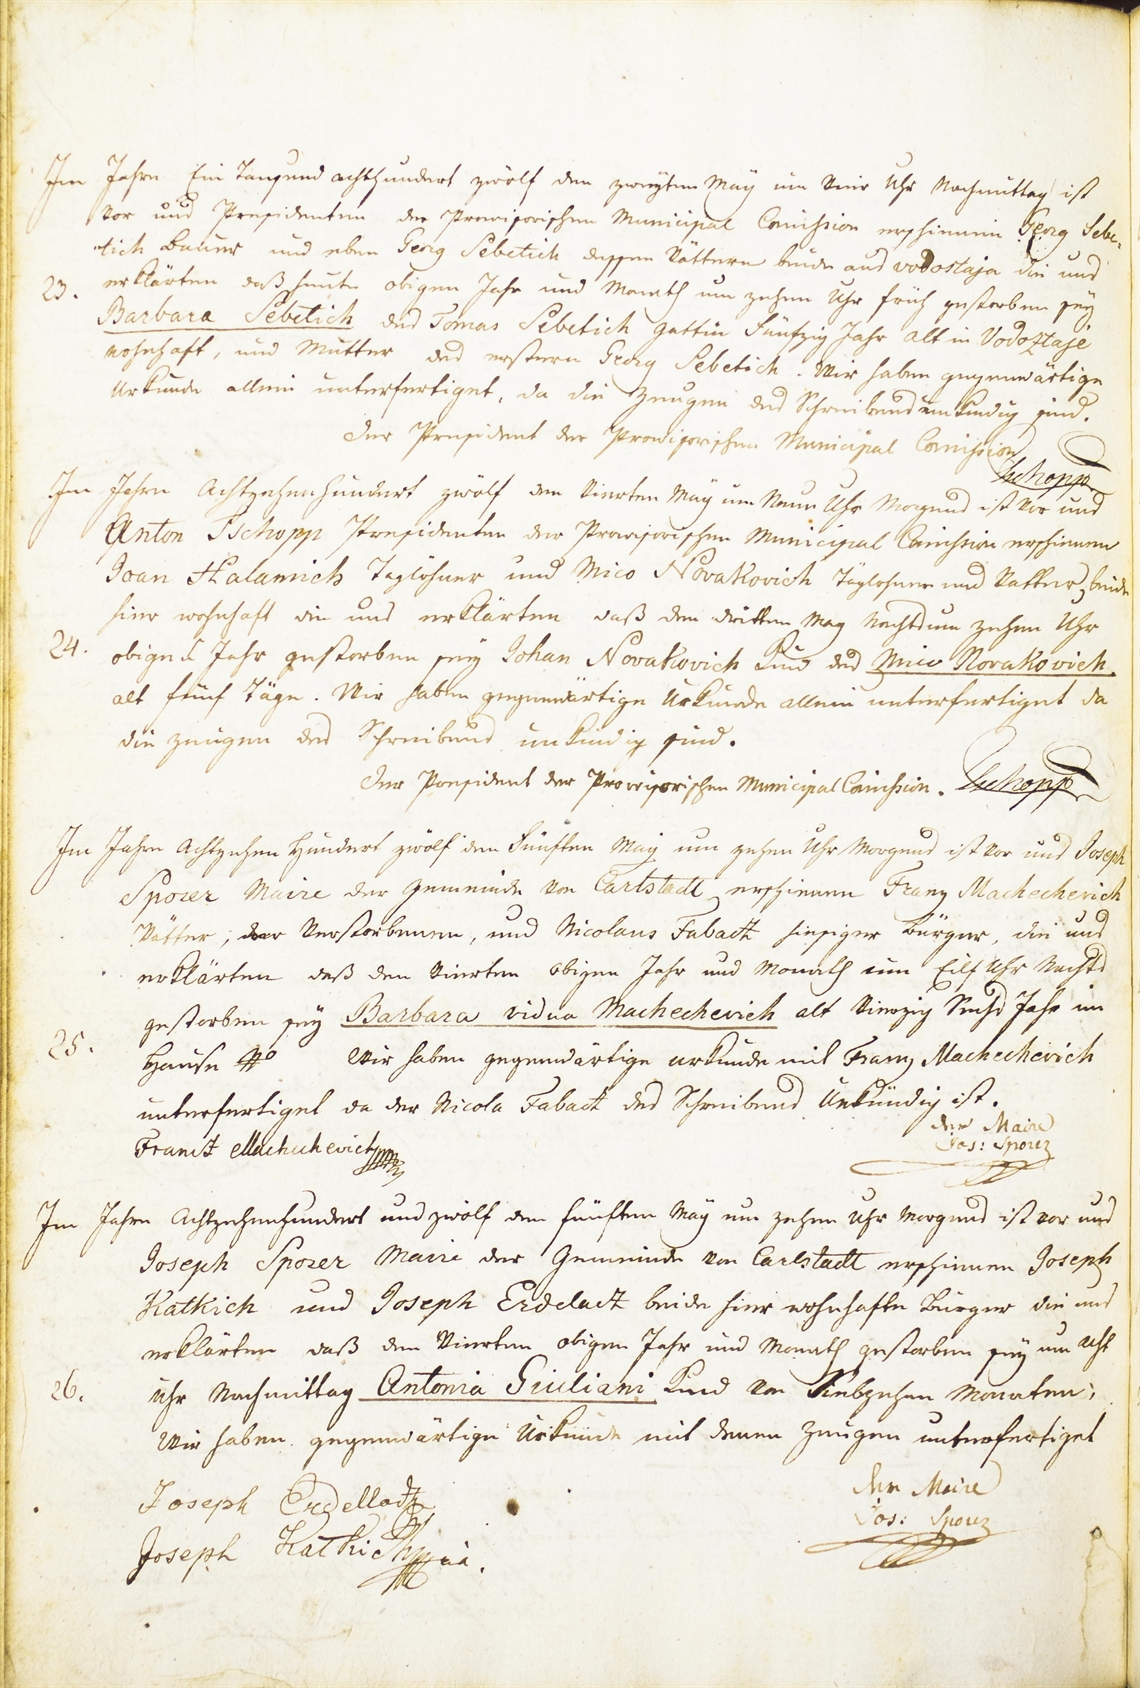 Im Jahre Ein Tausend achthundert zwölf den zweyten May um vier Uhr Nachmittag ist
vor uns Presidenten der Provisorischen Municipal Comission erschienen Georg Sebe-
tich Bauer und eben Georg Sebetich dessen Vättern beide aus Vodostaja die uns
23. erklärten daß heute obigen Jahr und Monath um zehen Uhr früh gestorben sey
Barbara Sebetich des Tomas Sebetich Gattin Fünfzig Jahr alt in Vodoztaje
wohnhaft, und Mutter des erstern Georg Sebetich. Wir haben gegenwärtige
Urkunde allein unterfertiget, da die Zeugen des Schreibens unkundig sind.
Der President der Provisorischen Municipal Comission
Tschopp
Im Jahre Achtzehenhundert zwölf den Vierten May um Neun Uhr Morgens ist vor uns
Anton Tschopp Presidenten der Provisorischen Municipal Comission erschienen
Joan Halamich Taglöhner und Mico Novakovich Taglöhner und Vatter, beide
hier wohnhaft die uns erklärten daß den dritten May Nachts um zehen Uhr
24. obigen Jahr gestorben sey Johan Novakovich Kind des Mico Novakovich.
alt fünf Täge. Wir haben gegenwärtige Urkunde allein unterfertiget da
die Zeugen des Schreibens unkundig sind.
Der President der Provisorischen Municipal Comission. Tschopp
Im Jahre Achtzehen Hundert zwölf den Fünften May um zehen Uhr Morgens ist vor uns Joseph
Sporer Maire der Gemeinde von Carlstadt erschienen Franz Machechevich
Vätter, der Verstorbenen, und Nicolaus Fabacz hiesiger Bürger, die uns
erklärten daß den Vierten obigen Jahr und Monath um Eilf Uhr Nachts
gestorben sey Barbara vidua Machechevich alt Vierzig Sechs Jahr im
25. Hause No Wir haben gegenwärtige Urkunde mit Franz Machechevich
unterfertiget da der Nicola Fabacz des Schreibens Unkündig ist.
der Maire
Francz Machechevich Jos: Sporer
Im Jahre Achtzehenhundert und zwölf den fünften May um zehen Uhr Morgens ist vor uns
Joseph Sporer Maire der Gemeinde von Carlstadt erschienen Joseph
Katkich und Joseph Erdelacz beide hier wohnhafte Bürger die uns
erklärten daß den Vierten obigen Jahr und Monath gestorben sey um Acht
26. Uhr Nachmittag Antonia Giuliani Kind von Siebzehen Monaten;
Wir haben gegenwärtige Urkunde mit denen Zeugen unterfertiget
Joseph Erdellacz der Maire
Joseph Katkich Jos: Sporer